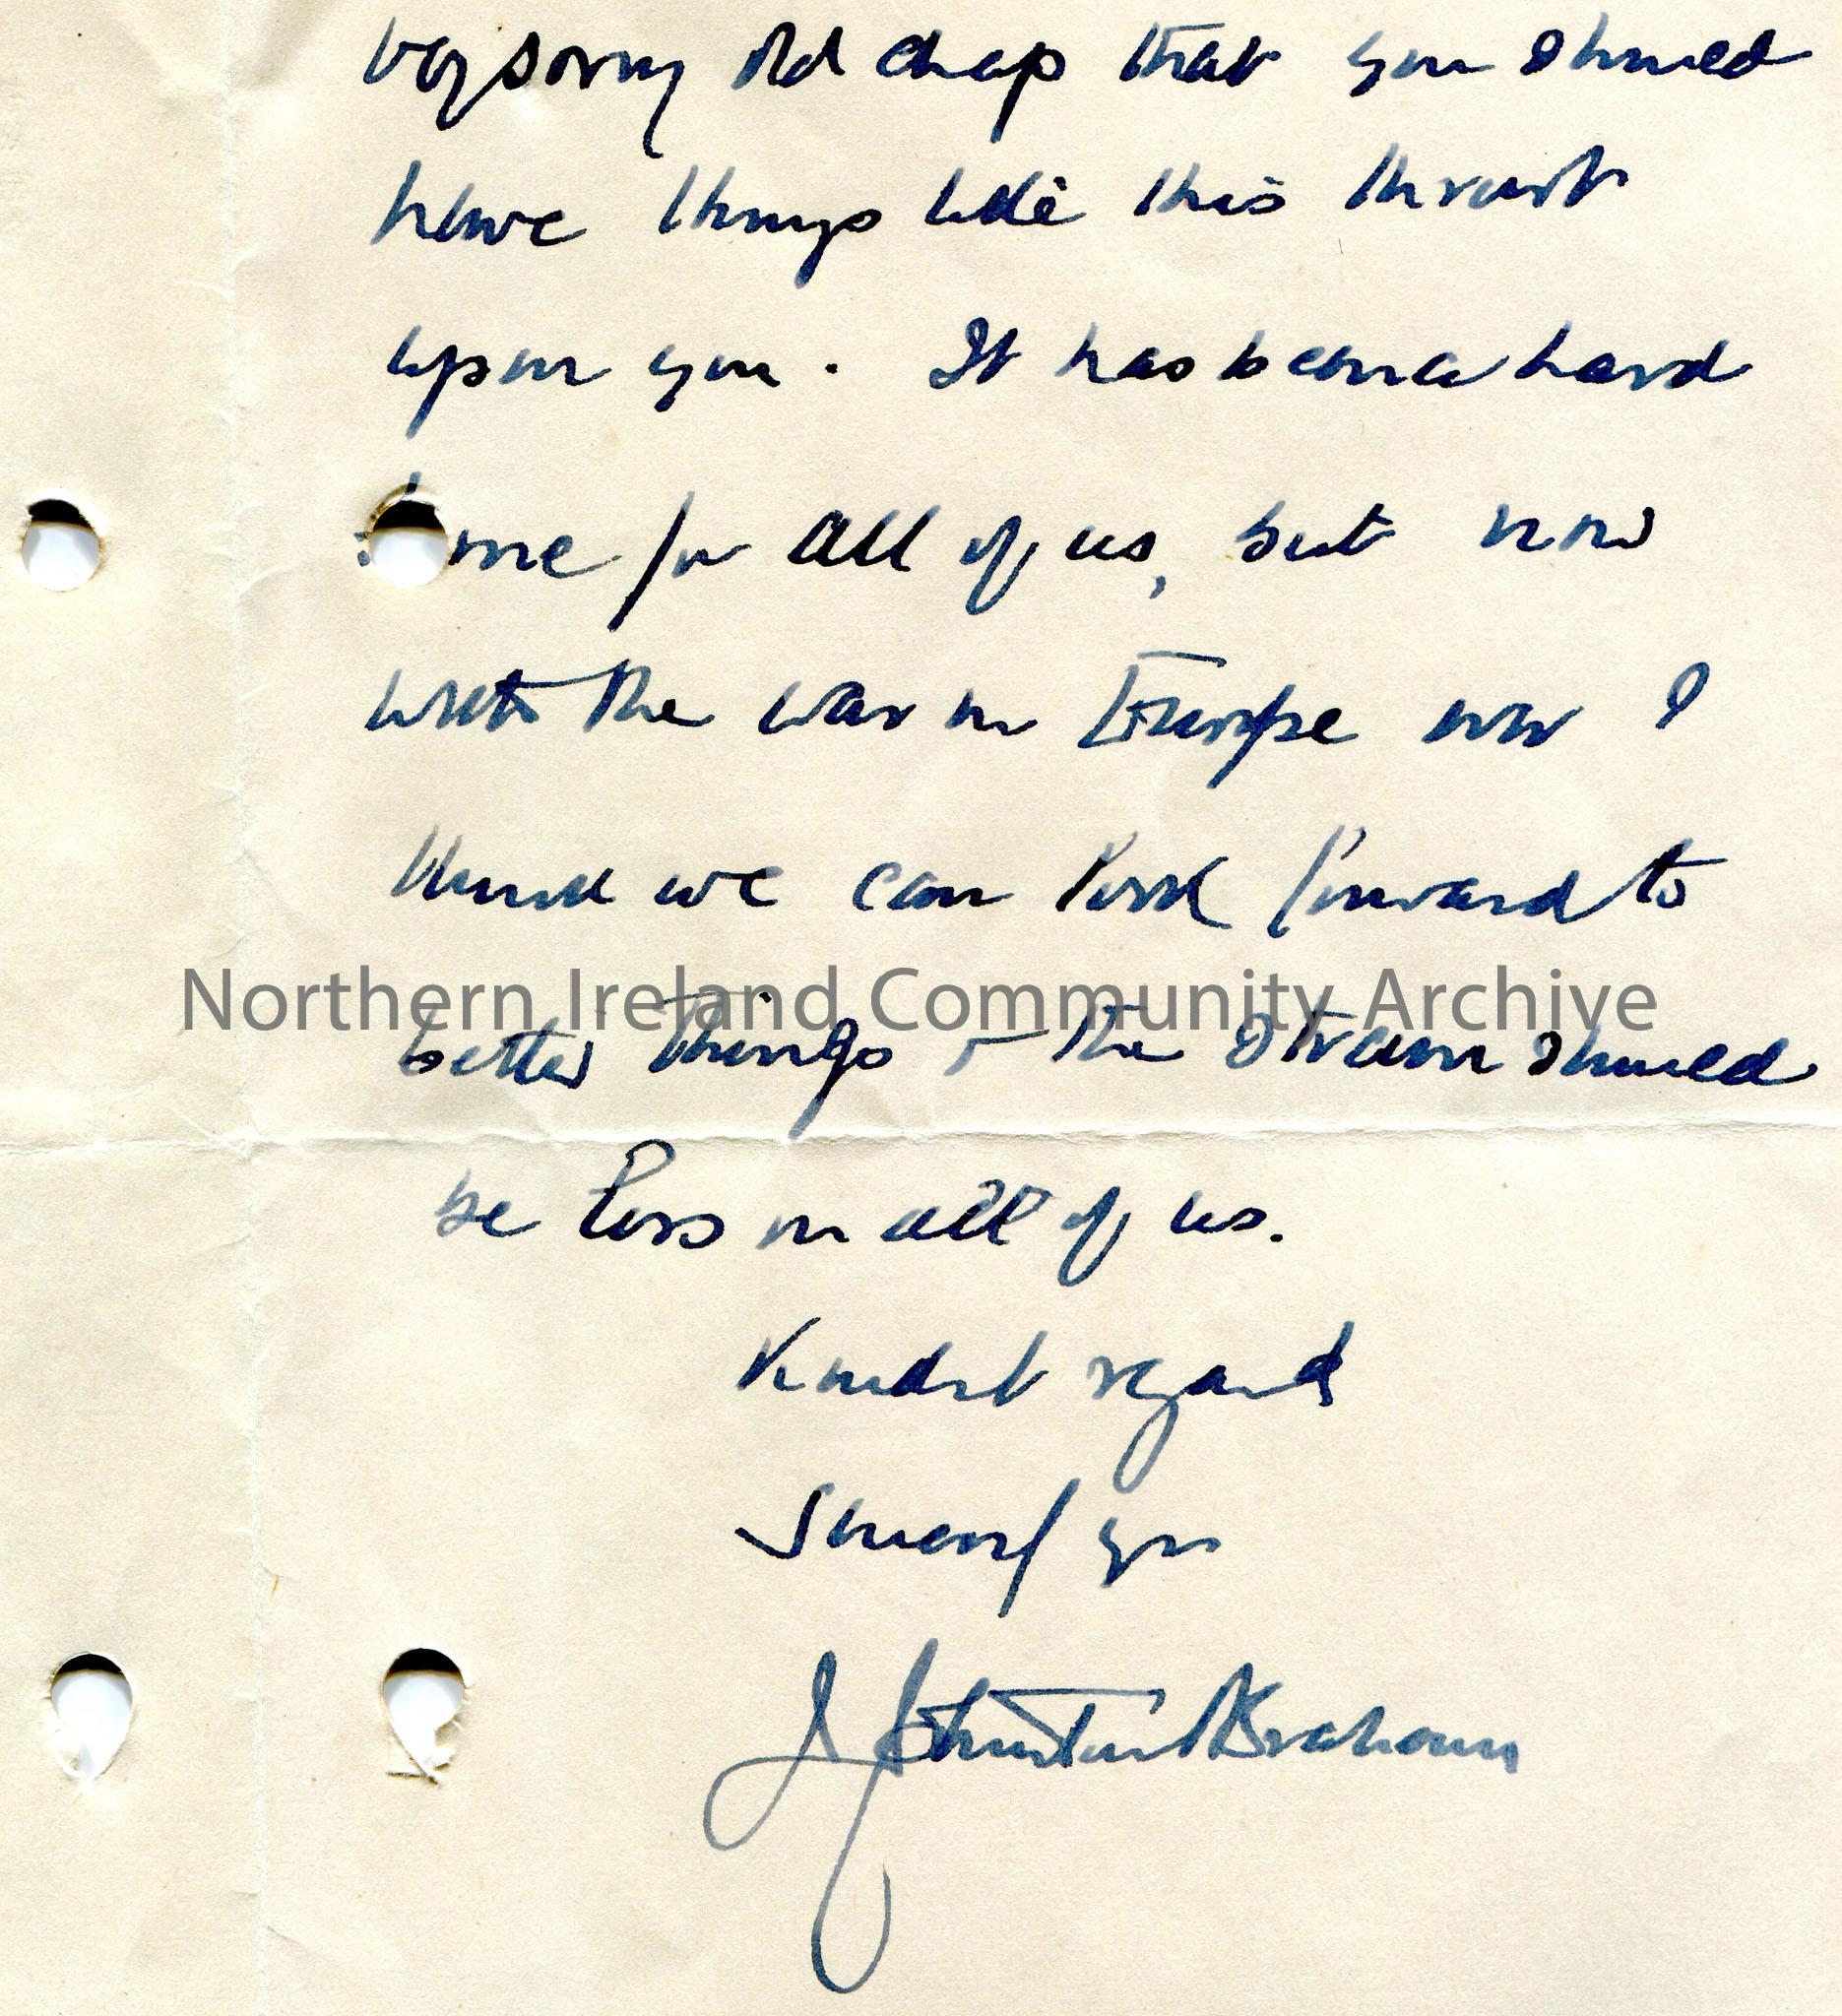 very sorry old chap that you should
have things like this thrust
upon you. It has been a hard
time for all of us, but now
with the war in Europe over I
think we can look forward to
Northern Ireland Community Archive
better things & the strain should
be less on all of us.
Kindest regards
Sincerely yrs
J Johnston Abraham